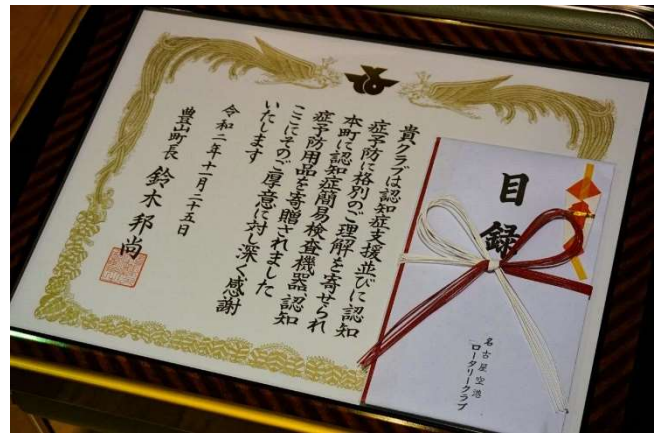 貴クラブは認知症支援並びに認知
症予防に格別のご理解を寄せられ
本町に認知症簡易検査機器認知
症予防用品を寄贈されました
ここにそのご厚意に対し深く感謝
いたします
令和二年十一月二十五日
豊山町長 鈴木邦尚
目録
名古屋空港
ロータリークラブ